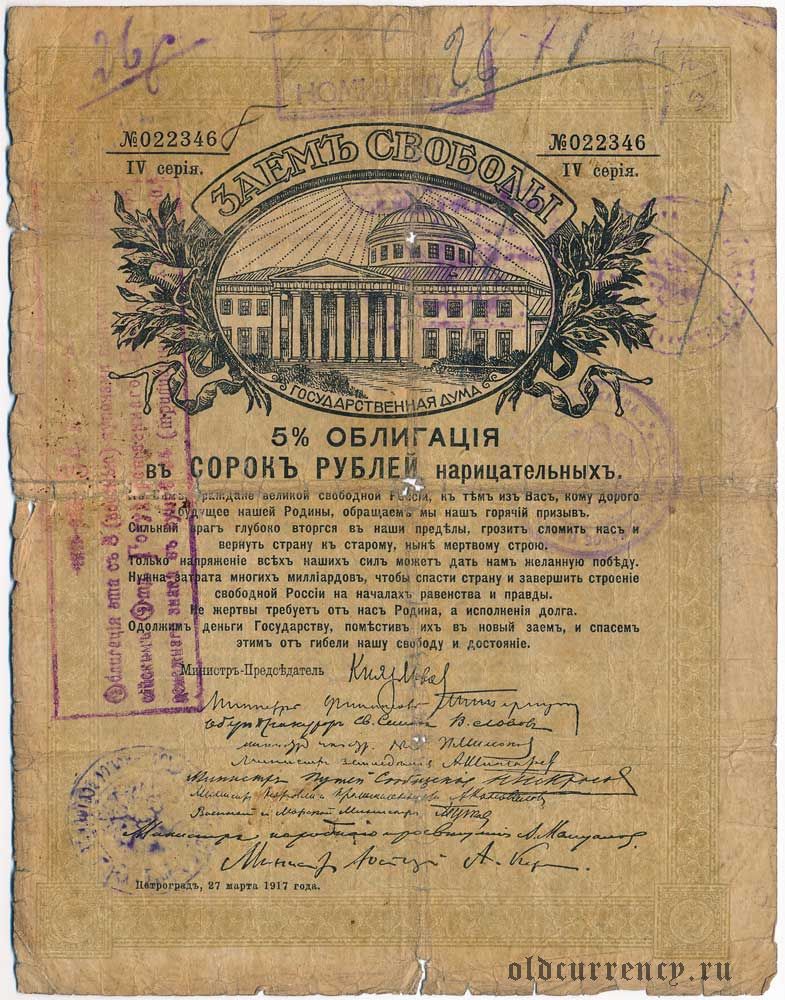 26
26
НОМИНАЛ
№022346
№022346
IV серія.
IV серія.
ЗАЕМЪ СВОБОДЫ
ГОСУДАРСТВЕННАЯ ДУМА
5% ОБЛИГАЦІЯ
въ СОРОКЪ РУБЛЕЙ нарицательныхъ.
граждане великой свободной Россіи, къ тѣмъ изъ Васъ, кому дорого
будущее нашей Родины, обращаемъ мы нашъ горячій призывъ.
Сильный врагъ глубоко вторгся въ наши предѣлы, грозитъ сломить насъ и
вернуть страну къ старому, нынѣ мертвому строю.
Только напряженіе всѣхъ нашихъ силъ можетъ дать намъ желанную побѣду.
Нужна затрата многихъ милліардовъ, чтобы спасти страну и завершить строеніе
свободной Россіи на началахъ равенства и правды.
Не жертвы требуетъ отъ насъ Родина, а исполненія долга.
Одолжимъ деньги Государству, помѣстивъ ихъ въ новый заемъ, и спасемъ
этимъ отъ гибели нашу свободу и достояніе.
Министръ-Предсѣдатель Князь Львовъ
Министръ Финансовъ
Оберъ Прокуроръ Св. Синода В. Львовъ
П. Милюковъ
Министръ земледѣлія А. Шингаревъ
Министръ Путей Сообщенія Н. Некрасовъ
Министръ Торговли и Промышленности А. Коноваловъ
Военный и Морской Министръ А. Гучковъ
Министръ народнаго просвѣщенія А. Мануиловъ
Министръ Юстиціи А. Кер
Петроградъ, 27 марта 1917 года.
Облигація эта съ
денежнаго знака въ
oldcurrency.ru